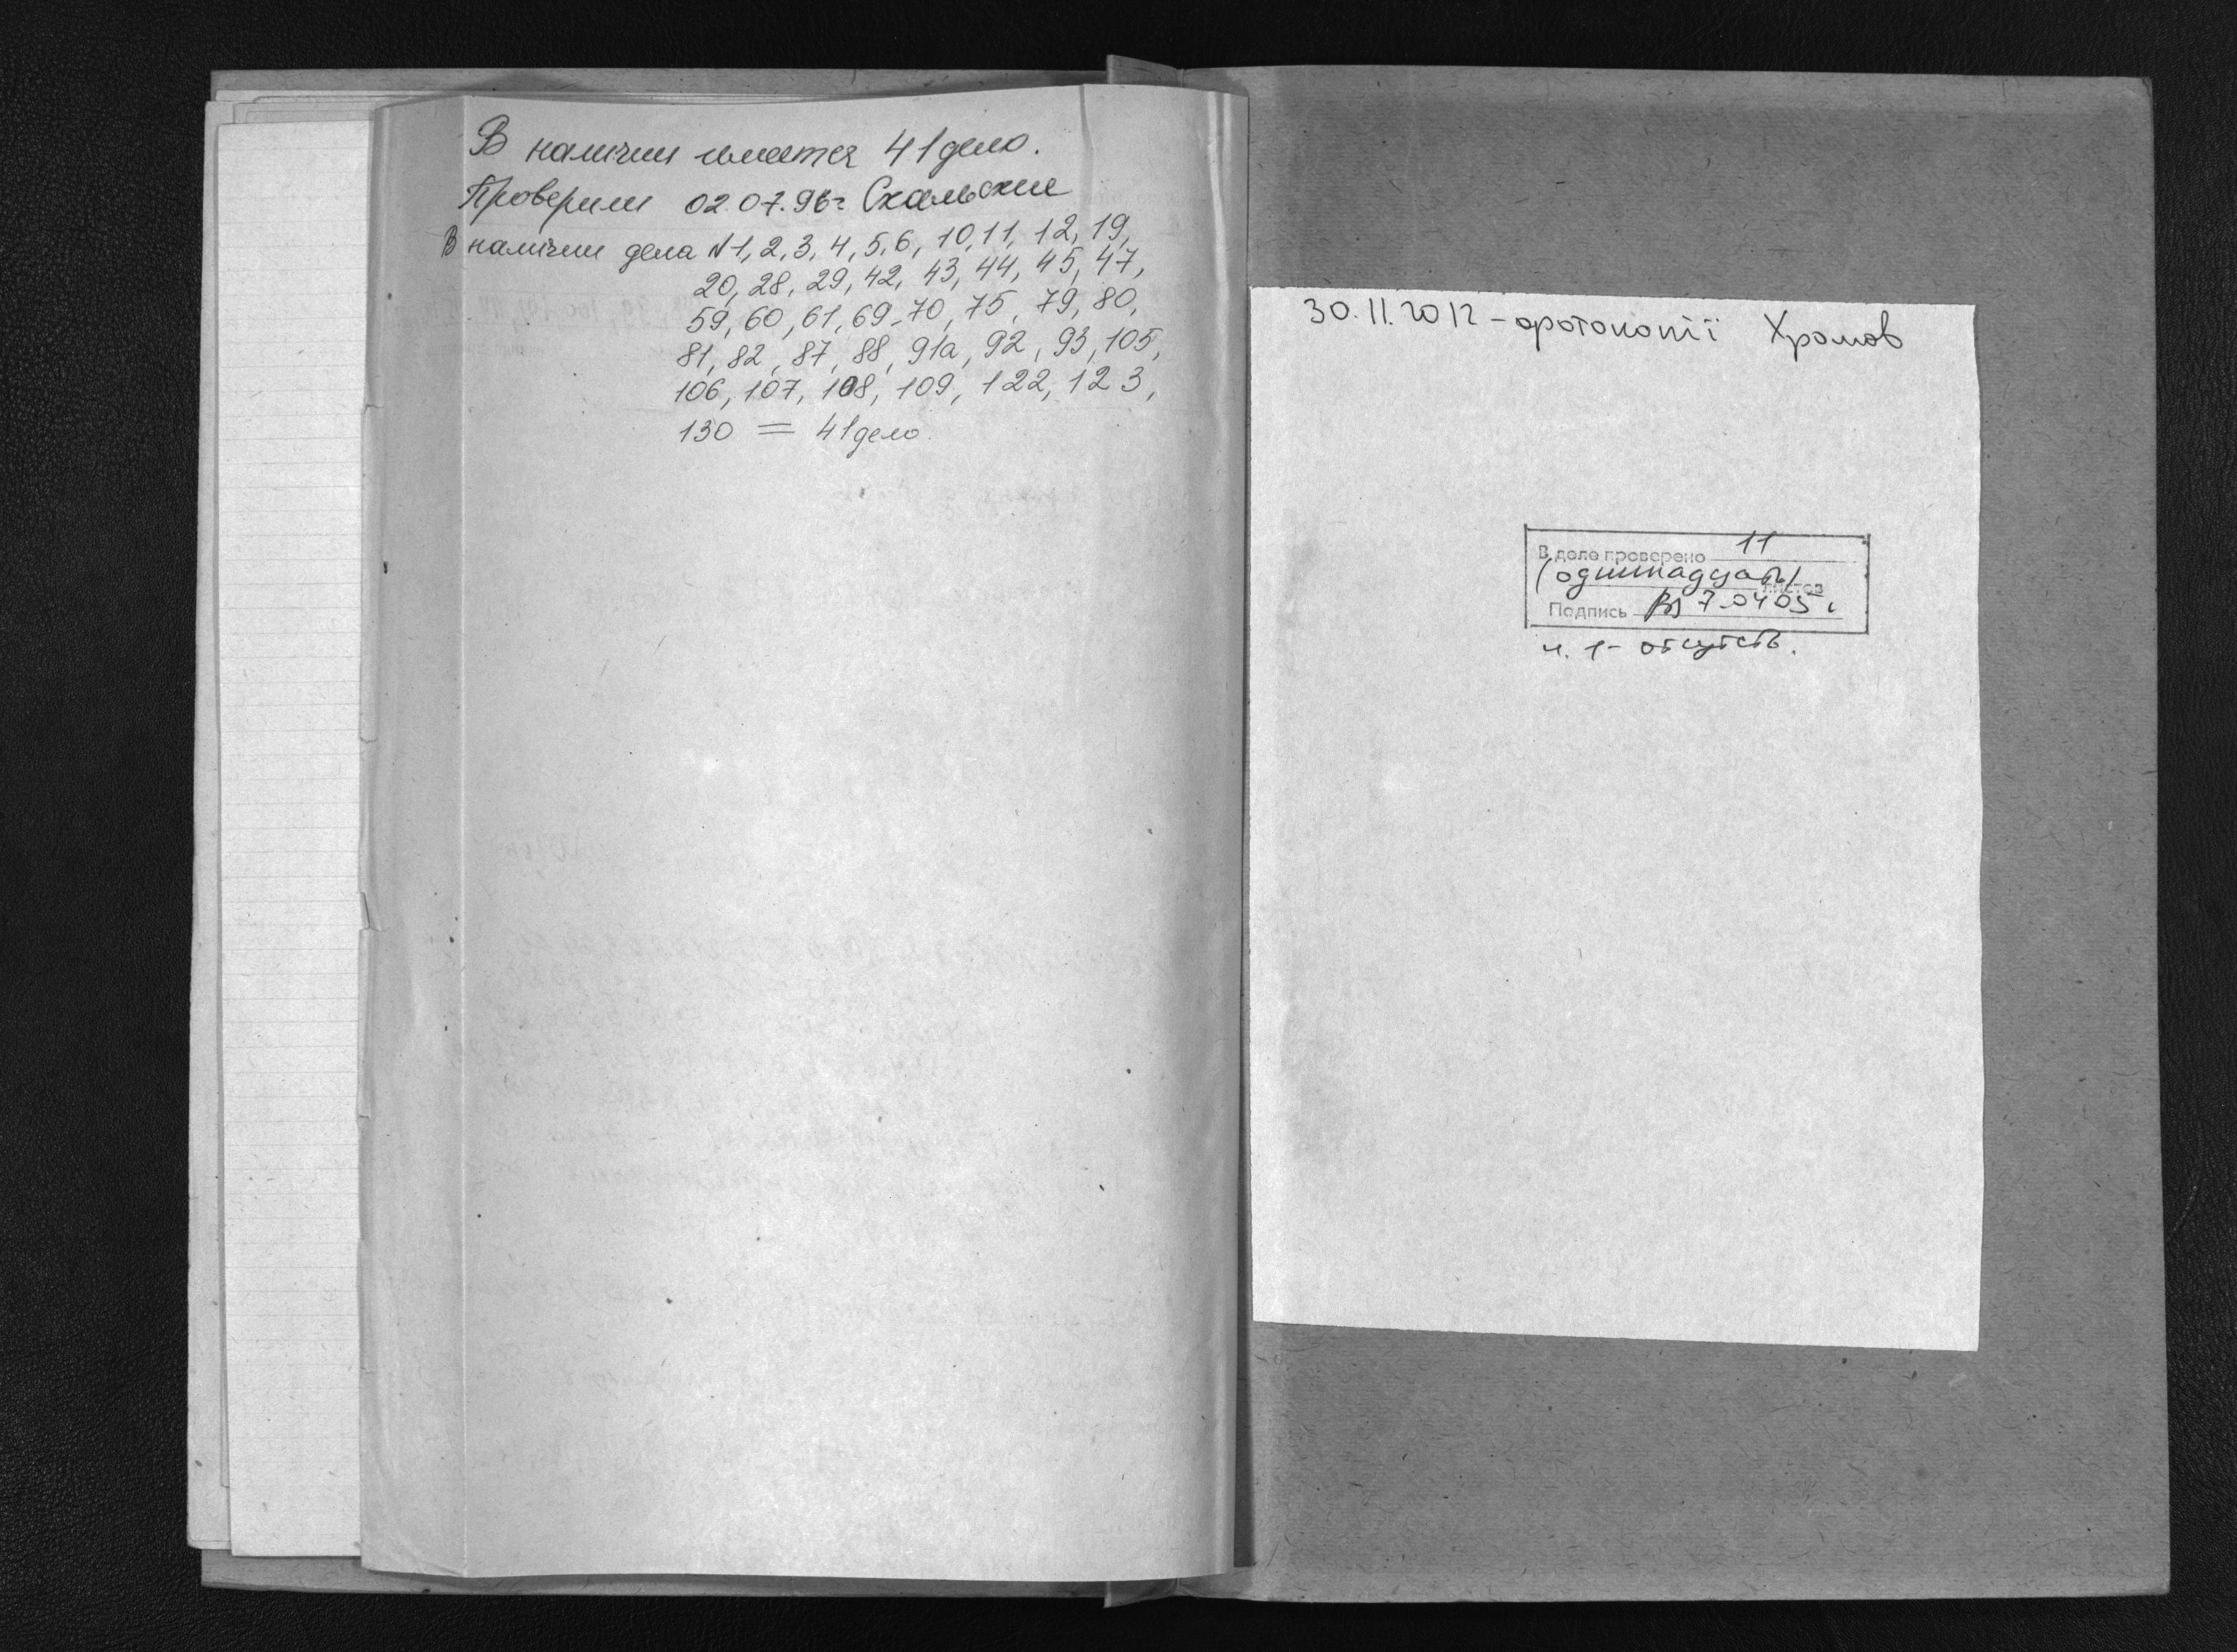 В наличии имеется 41 дело.
Проверили 02.07.96г Скальские
В наличии дела №1, 2, 3, 4, 5, 6, 10, 11, 12, 19,
20, 28, 29, 42, 43, 44, 45, 47,
59, 60, 61, 69-70, 75, 79, 80,
81, 82, 87, 88, 91а, 92, 93, 105,
106, 107, 108, 109, 122, 123,
130 = 41 дело.
30.11.2012 - фотокопії Хромов
В деле проверено 11
(одиннадцать) листов
Подпись 7.04 05 г
н. 1 - отсутств.